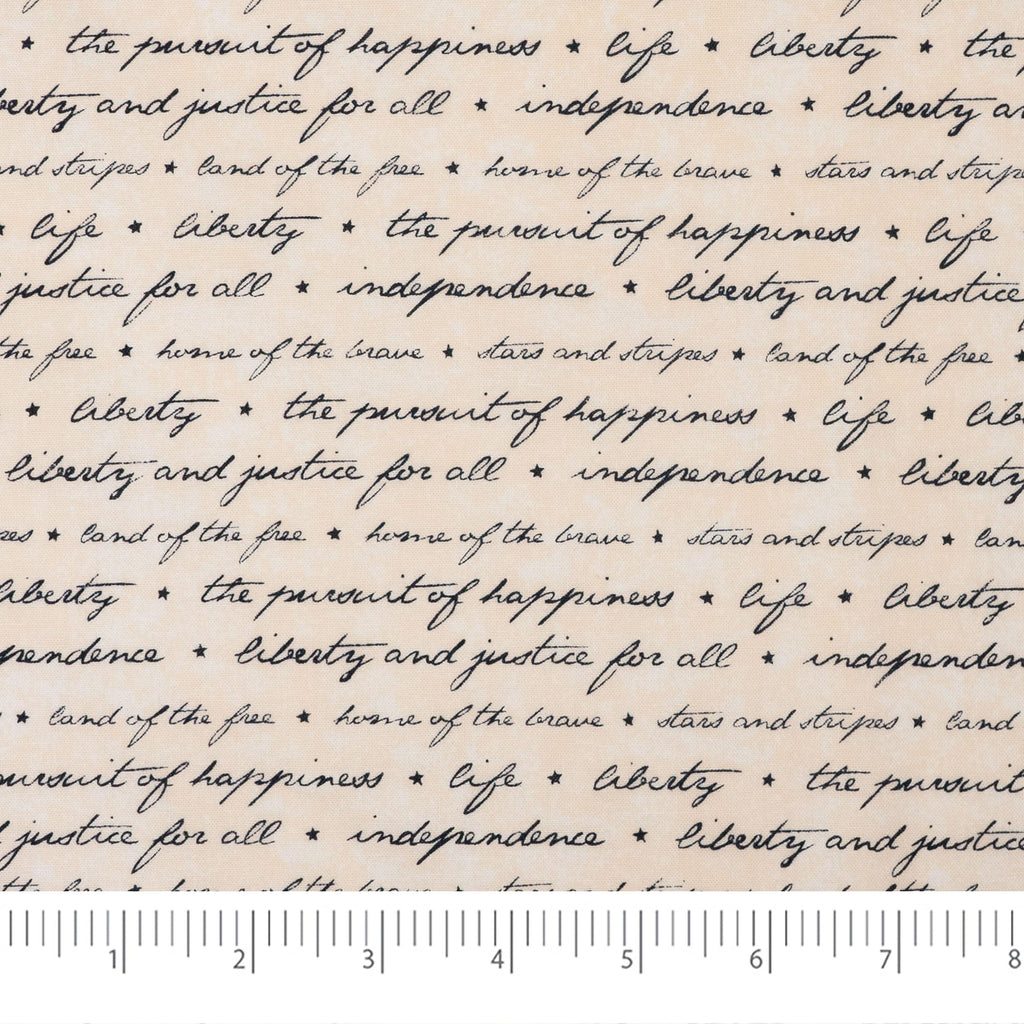 ★ the pursuit of happiness ★ life ★ liberty ★ the
berty and justice for all ★ independence ★ liberty an
nd stripes ★ land of the free ★ home of the brave ★ stars and stripe
★ life ★ liberty ★ the pursuit of happiness ★ life
justice for all ★ independence ★ liberty and justice
the free ★ home of the brave ★ stars and stripes ★ land of the free ★
★ liberty ★ the pursuit of happiness ★ life ★ lib
liberty and justice for all ★ independence ★ liberty
pes ★ land of the free ★ home of the brave ★ stars and stripes ★ lan
liberty ★ the pursuit of happiness ★ life ★ liberty
pendence ★ liberty and justice for all ★ independen
★ land of the free ★ home of the brave ★ stars and stripes ★ land
pursuit of happiness ★ life ★ liberty ★ the pursuit
justice for all ★ independence ★ liberty and justice
1 2 3 4 5 6 7 8